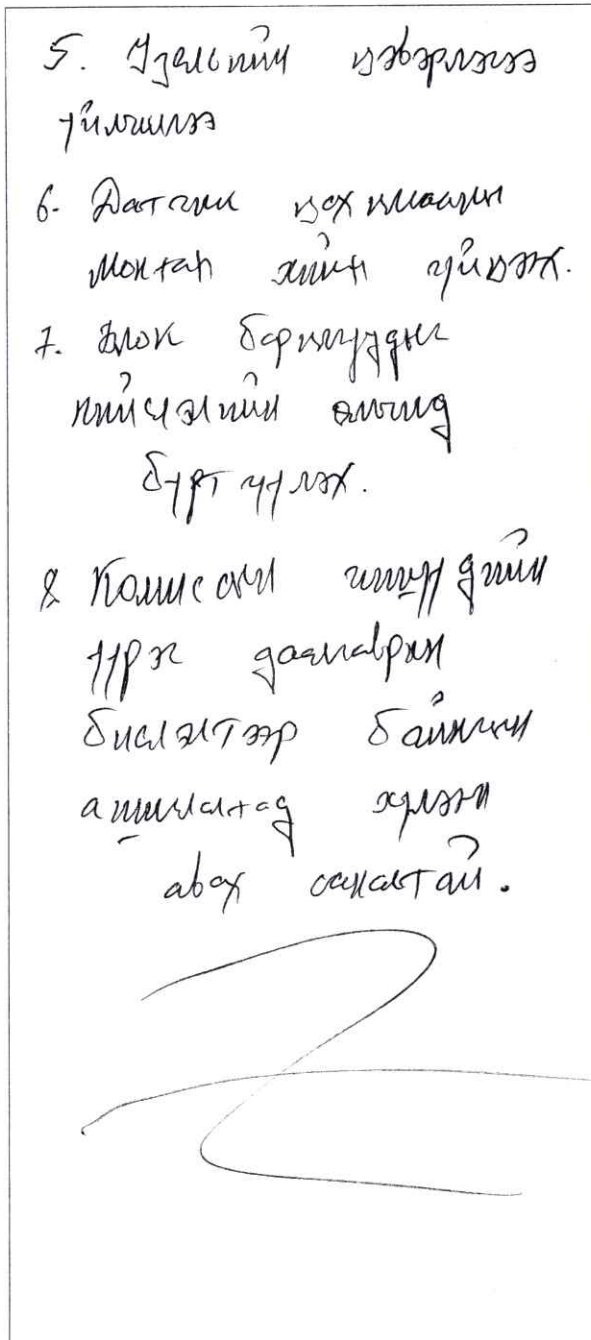 5. Узелийн цэвэрлэгээ
үйлчилгээ
6. Датчик цахилгаан
монтаж хийн гүйцээх.
7. Блок барилгуудыг
нийслэлийн өмчид
бүртгүүлэх.
8 Комиссын гишүүдийн
үүрэг даалгаврын
биелэлтээр байнгын
ашиглалтад хүлээн
авах саналтай.